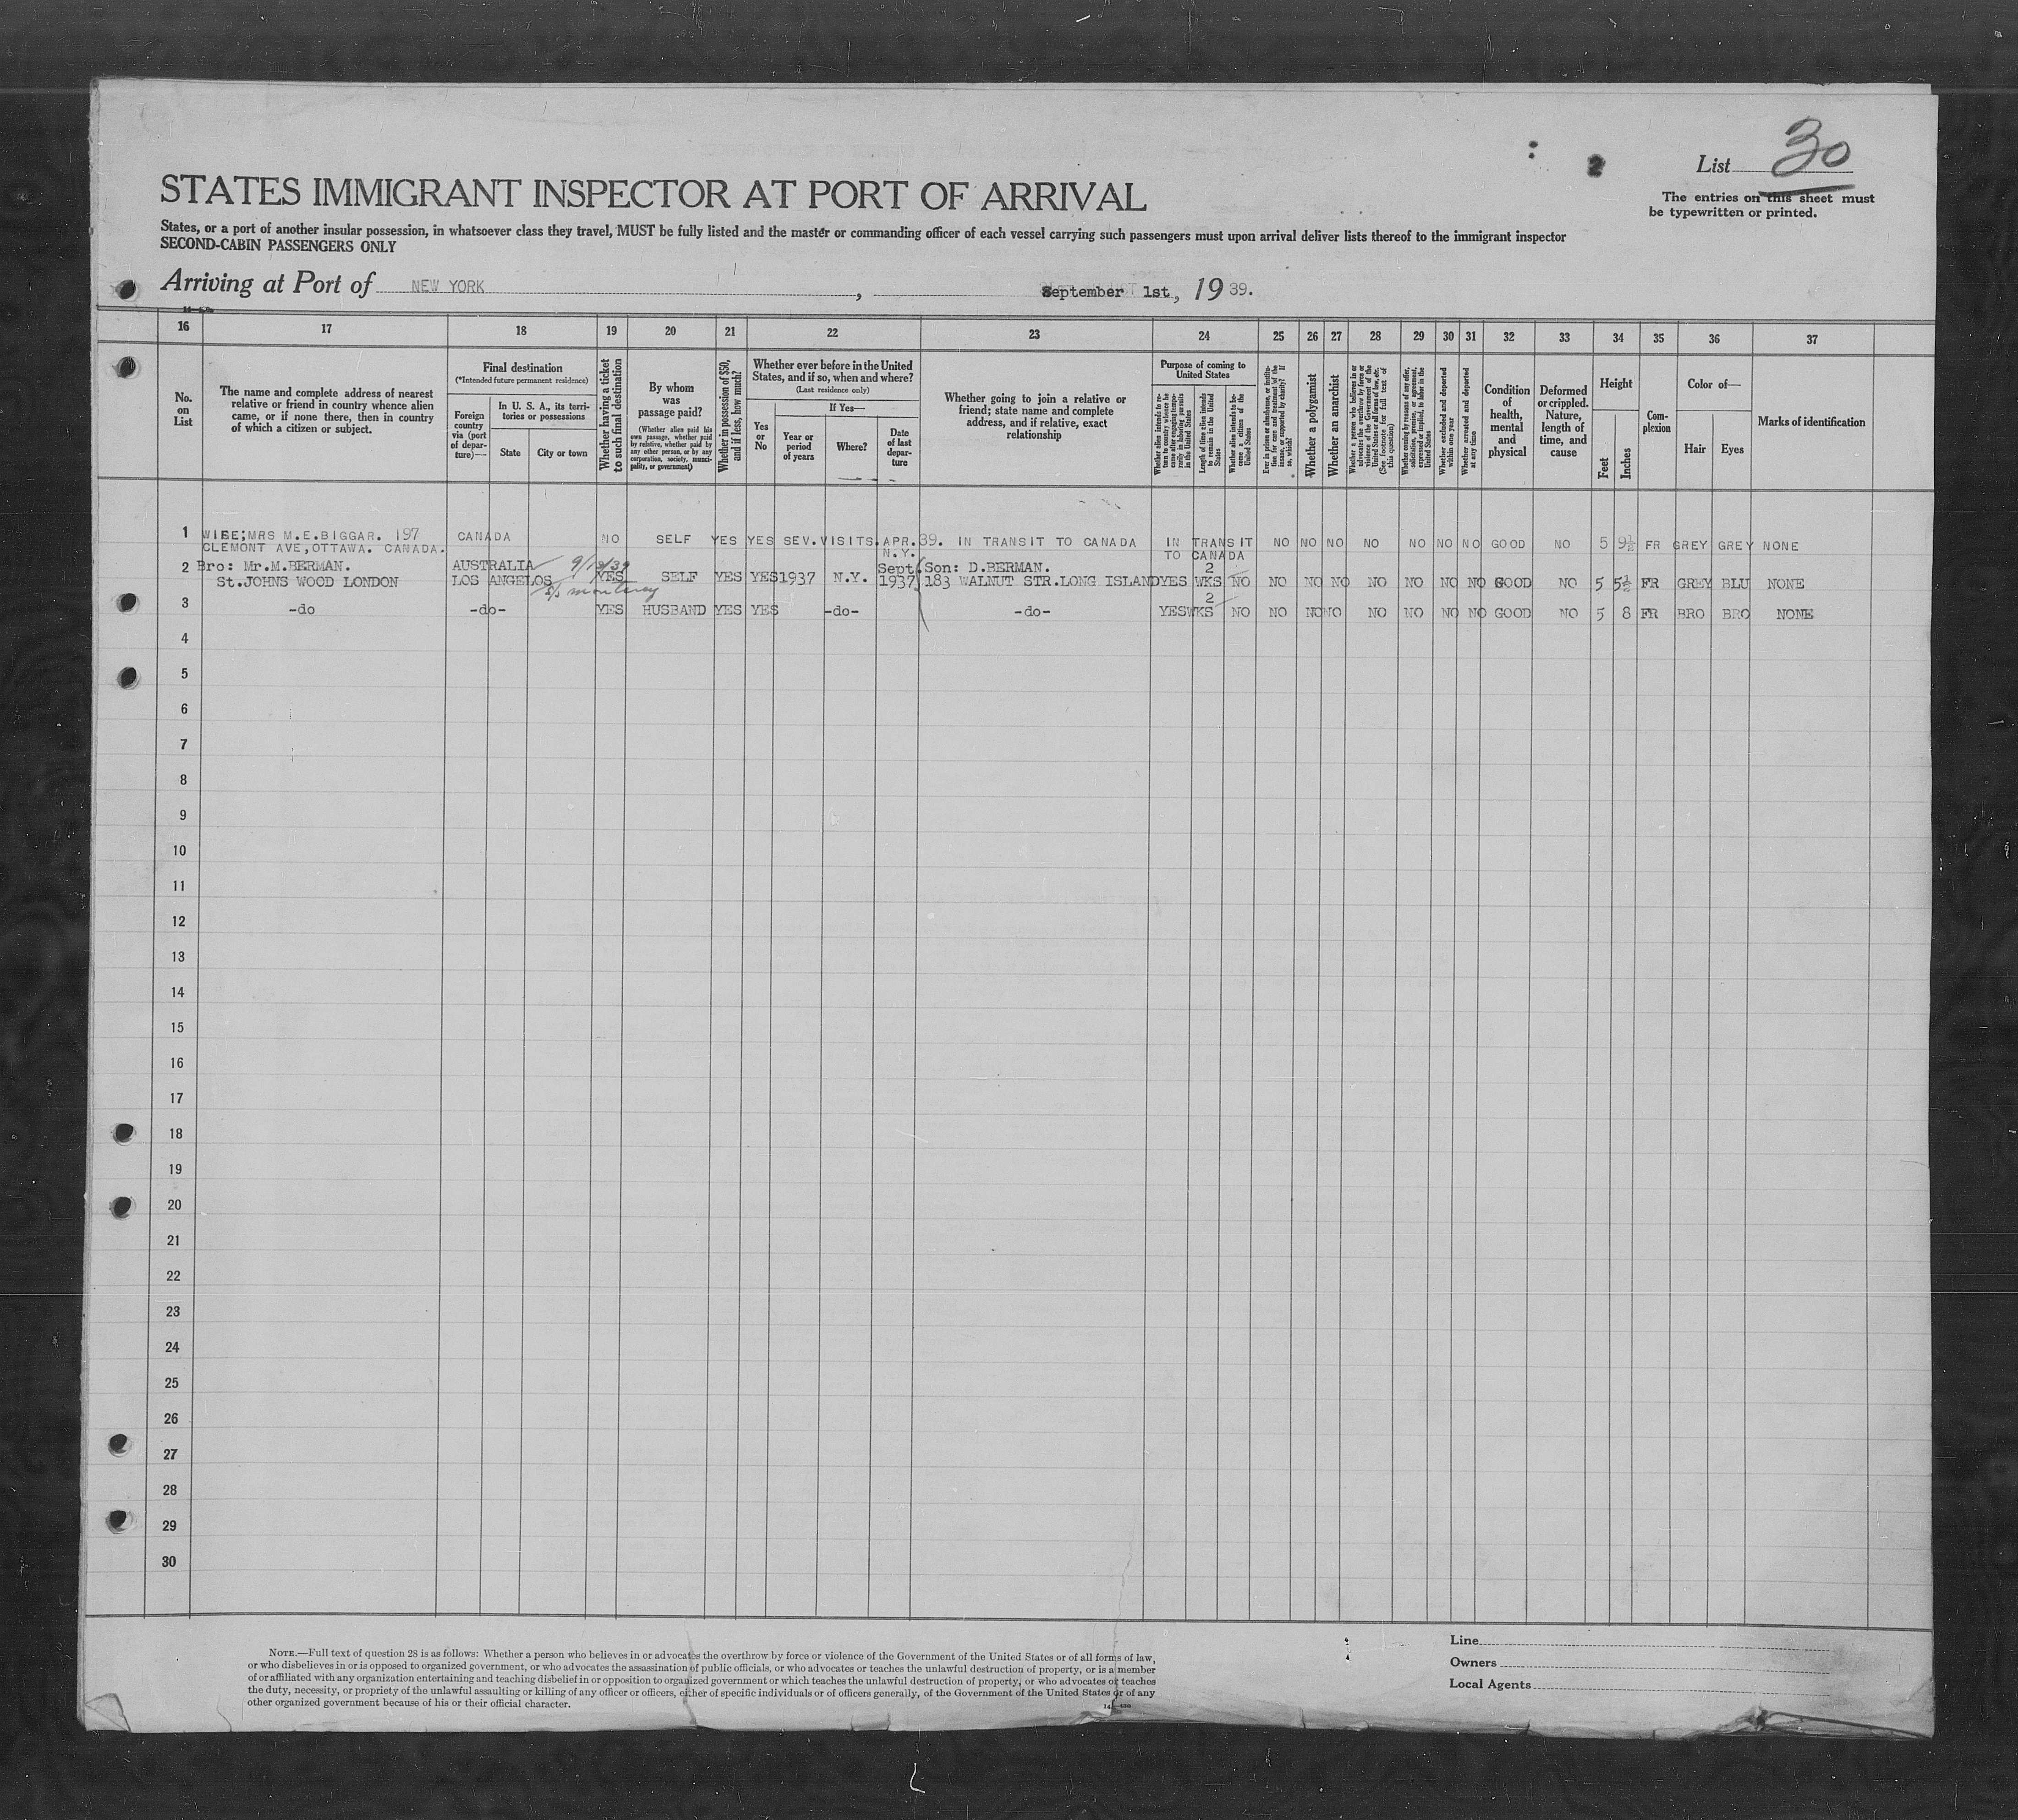 List 30
The entries on this sheet must
be typewritten or printed.
STATES IMMIGRANT INSPECTOR AT PORT OF ARRIVAL
States, or a port of another insular possession, in whatsoever class they travel, MUST be fully listed and the master or commanding officer of each vessel carrying such passengers must upon arrival deliver lists thereof to the immigrant inspector
SECOND-CABIN PASSENGERS ONLY
Arriving at Port of NEW YORK, September 1st, 19 39.
16 17 18 19 20 21 22 23 24 25 26 27 28 29 30 31 32 33 34 35 36 37
No.
on
List
The name and complete address of nearest
relative or friend in country whence alien
came, or if none there, then in country
of which a citizen or subject.
Final destination
(*Intended future permanent residence)
Foreign
country
via (port
of depar-
ture)—
In U. S. A., its terri-
tories or possessions
State
City or town
Whether having a ticket
to such final destination
By whom
was
passage paid?
(Whether alien paid his
own passage, whether paid
by relative, whether paid by
any other person, or by any
corporation, society, munici-
pality, or government)
Whether in possession of $50,
and if less, how much?
Whether ever before in the United
States, and if so, when and where?
(Last residence only)
Yes
or
No
If Yes—
Year or
period
of years
Where?
Date
of last
depar-
ture
Whether going to join a relative or
friend; state name and complete
address, and if relative, exact
relationship
Purpose of coming to
United States
Whether alien intends to re-
turn to country whence he
came after engaging tempo-
rarily in laboring pursuits
in the United States
Length of time alien intends
to remain in the United
States
Whether alien intends to be-
come a citizen of the
United States
Ever in prison or almshouse, or institu-
tion for care and treatment of the
insane, or supported by charity? If
so, which?
Whether a polygamist
Whether an anarchist
Whether a person who believes in or
advocates the overthrow by force or
violence of the Government of the
United States or all forms of law, etc.
(See footnote for full text of
this question)
Whether coming by reasons of any offer,
solicitation, promise, or agreement,
expressed or implied, to labor in the
United States
Whether excluded and deported
within one year
Whether arrested and deported
at any time
Condition
of
health,
mental
and
physical
Deformed
or crippled.
Nature,
length of
time, and
cause
Height
Feet
Inches
Com-
plexion
Color of—
Hair
Eyes
Marks of identification
1 WIFE;MRS M.E.BIGGAR. 197 CANADA NO SELF YES YES SEV.VISITS.APR.39. IN TRANSIT TO CANADA IN TRANSIT NO NO NO NO NO NO NO GOOD NO 5 9½ FR GREY GREY NONE
CLEMONT AVE,OTTAWA. CANADA. N.Y. TO CANADA
2 Bro: Mr.M.BERMAN. AUSTRALIA 9/13/39 Sept. Son: D.BERMAN. 2
St.JOHNS WOOD LONDON LOS ANGELOS YES SELF YES YES 1937 N.Y. 1937 183 WALNUT STR.LONG ISLAND YES WKS NO NO NO NO NO NO NO NO GOOD NO 5 5½ FR GREY BLU NONE
S/S Monterey
2
3 -do -do- YES HUSBAND YES YES -do- -do- YES WKS NO NO NO NO NO NO NO NO GOOD NO 5 8 FR BRO BRO NONE
4
5
6
7
8
9
10
11
12
13
14
15
16
17
18
19
20
21
22
23
24
25
26
27
28
29
30
NOTE.—Full text of question 28 is as follows: Whether a person who believes in or advocates the overthrow by force or violence of the Government of the United States or of all forms of law,
or who disbelieves in or is opposed to organized government, or who advocates the assassination of public officials, or who advocates or teaches the unlawful destruction of property, or is a member
of or affiliated with any organization entertaining and teaching disbelief in or opposition to organized government or which teaches the unlawful destruction of property, or who advocates or teaches
the duty, necessity, or propriety of the unlawful assaulting or killing of any officer or officers, either of specific individuals or of officers generally, of the Government of the United States or of any
other organized government because of his or their official character.
Line
Owners
Local Agents